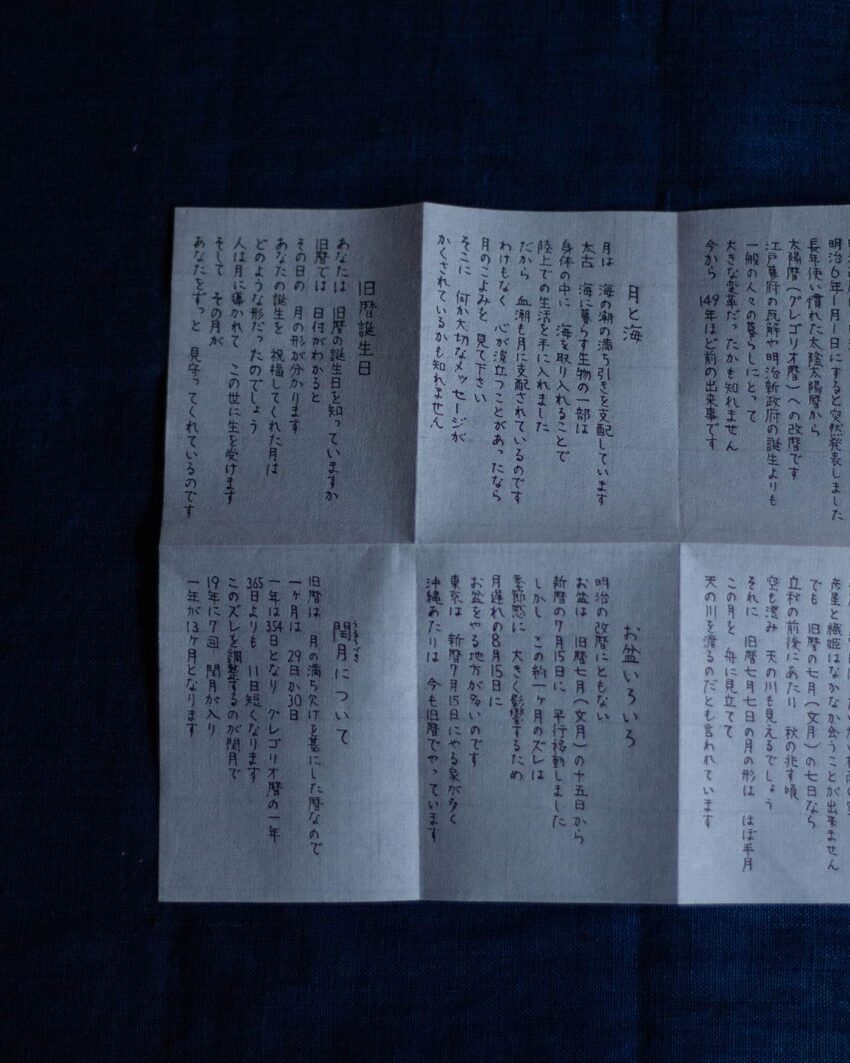 明治6年1月1日にすると突然発表しました
長年使い慣れた太陰太陽暦から
太陽暦(グレゴリオ暦)への改暦です
江戸幕府の瓦解や明治新政府の誕生よりも
一般の人々の暮らしにとって
大きな変革だったかも知れません
今から 149年ほど前の出来事です
月と海
月は 海の潮の満ち引きを支配しています
太古 海に暮らす生物の一部は
身体の中に 海を取り入れることで
陸上での生活を手に入れました
だから 血潮も月に支配されているのです
わけもなく 心が波立つことがあったなら
月のこよみを 見て下さい
そこに 何か大切なメッセージが
かくされているかも知れません
旧暦誕生日
あなたは 旧暦の誕生日を知っていますか
旧暦では 日付がわかると
その日の 月の形が分かります
あなたの誕生を 祝福してくれた月は
どのような形だったのでしょう
人は月に導かれて この世に生を受けます
そして その月が
あなたをずっと 見守ってくれているのです
彦星と織姫はなかなか会うことが出来ません
でも 旧暦の七月(文月)の七日なら
立秋の前後にあたり 秋の兆す頃
空も澄み 天の川も見えるでしょう
それに 旧暦七月七日の月の形は ほぼ半月
この月を 舟に見立てて
天の川を渡るのだとも言われています
お盆いろいろ
明治の改暦にともない
お盆は 旧暦七月(文月)の十五日から
新暦の7月15日に 平行移動しました
しかし この約一ヶ月のズレは
季節感に 大きく影響するため
月遅れの8月15日に
お盆をやる地方が多いのです
東京は 新暦7月15日にやる家が多く
沖縄あたりは 今も旧暦でやっています
うるうづき
閏月について
旧暦は 月の満ち欠けを基にした暦なので
一ヶ月は 29日か30日
一年は354日となり グレゴリオ暦の一年
365日よりも 11日短くなります
このズレを調整するのが閏月で
19年に7回 閏月が入り
一年が13ヶ月となります